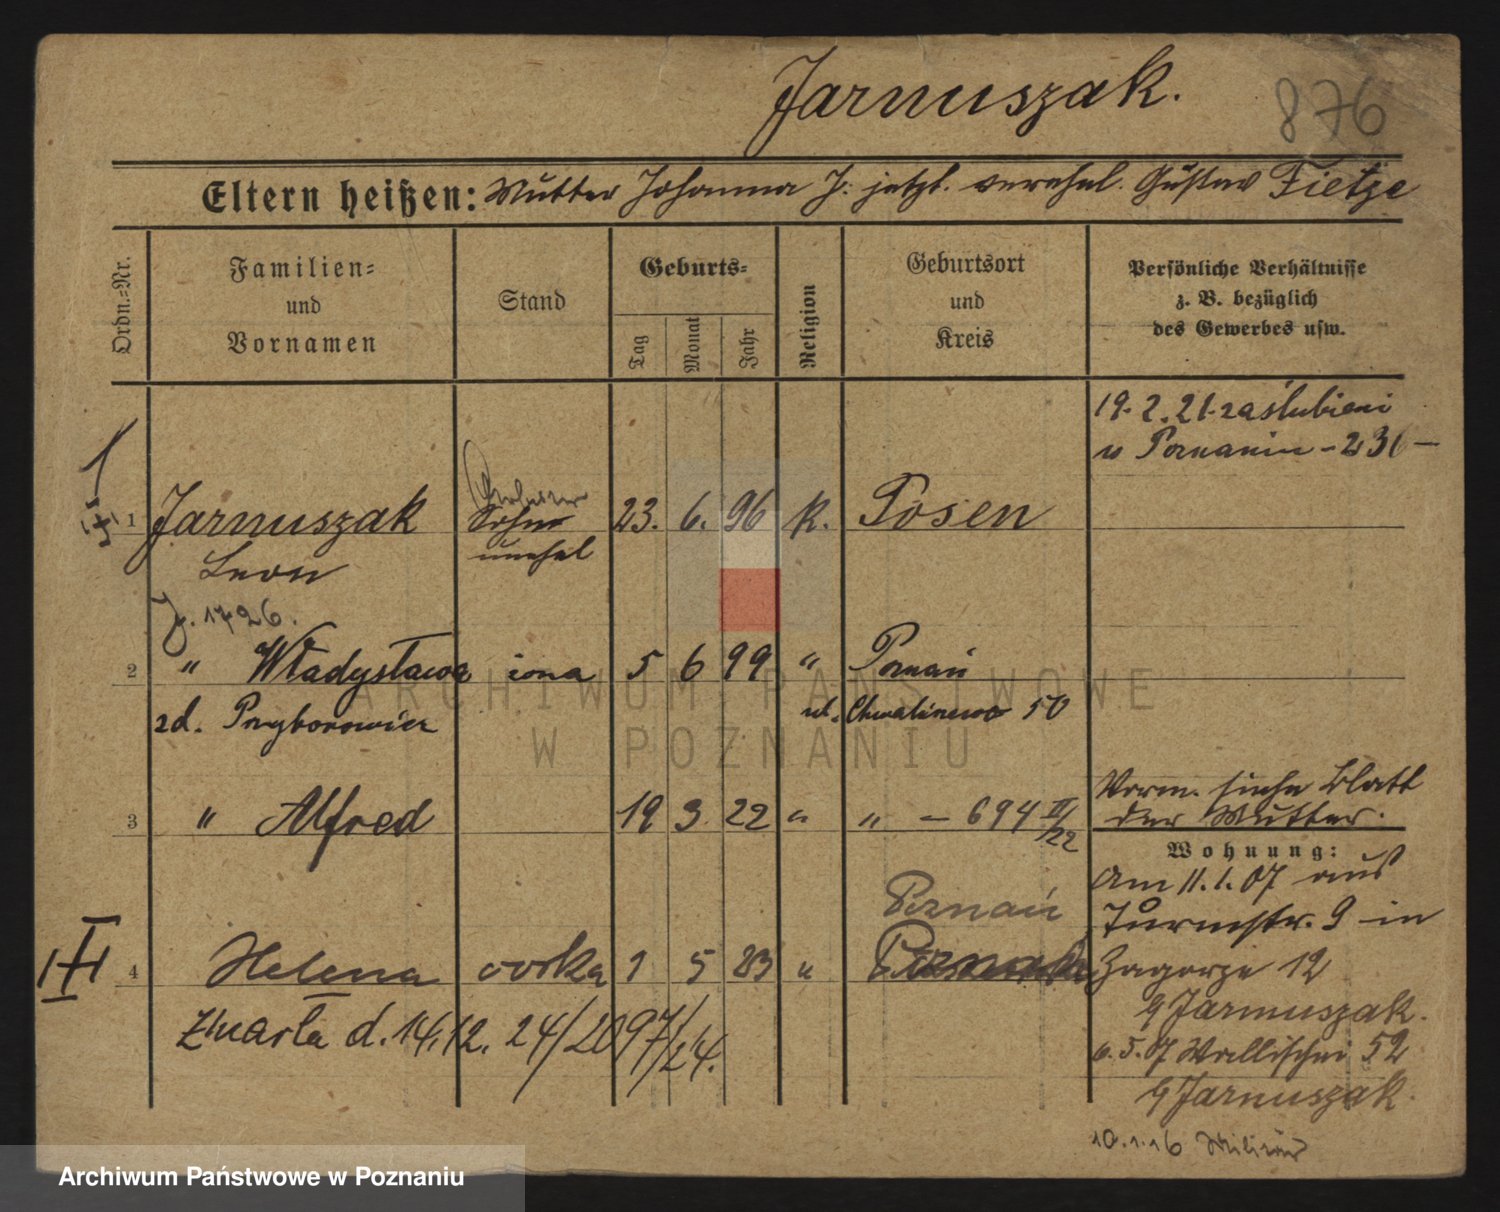 Jarnuszak.
876
Eltern heißen: Mutter Johanna J. jetzt. verehel. Gustav Fietze
Ordn.=Nr.
Familien=
und
Vornamen
Stand
Geburts=
Tag
Monat
Jahr
Religion
Geburtsort
und
Kreis
Persönliche Verhältnisse
z. B. bezüglich
des Gewerbes usw.
19. 2. 21. zaślubieni
w Poznaniu - 236 -
1 Jarnuszak Sohn 23. 6. 96 k. Posen
Leon unehel
J. 1726.
2 " Władysława żona 5 6 99 " Poznań
zd. Przyborowicz ul. Chwaliszewo 50
3 " Alfred 19 3 22 " " - 694 II/22
Vorm. siehe Blatt
der Mutter.
Wohnung:
Am 11.1.07 aus
Turmstr. 9 in
Zagorze 12
Poznań
4 Helena córka 1 5 23 "
Zmarła d. 14.12. 24/2097/24.
q Jarnuszak.
6.5.07 Wallischei 52
q Jarnuszak.
10.1.16 Militär
ARCHIWUM PAŃSTWOWE
W POZNANIU
Archiwum Państwowe w Poznaniu